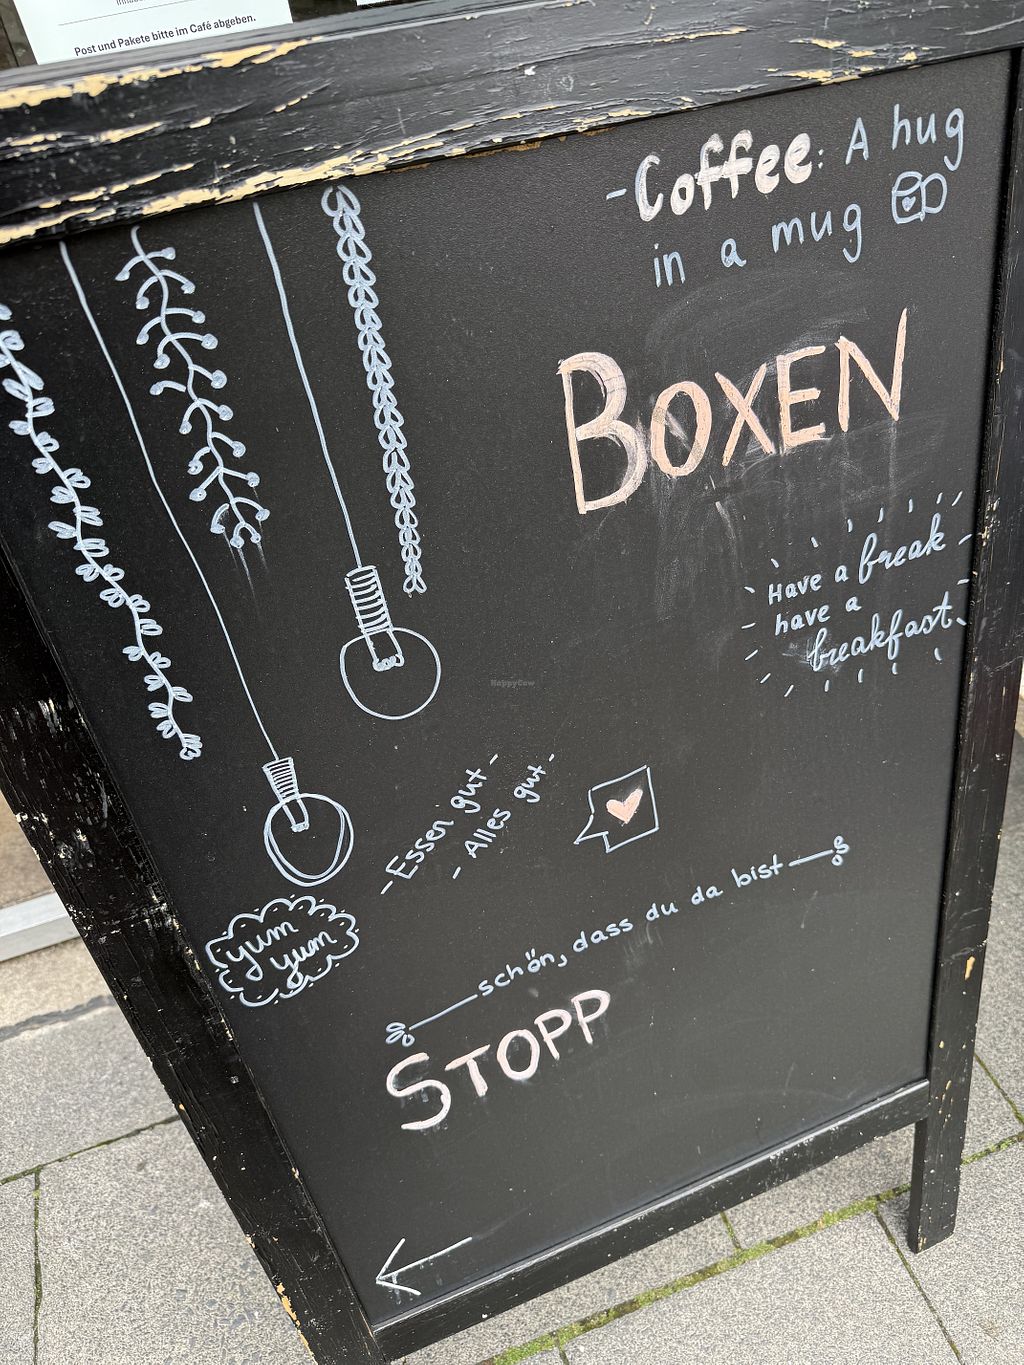 Post und Pakete bitte im Café abgeben.
-Coffee: A hug
in a mug
BOXEN
Have a break
have a
breakfast
-Essen gut-
-Alles gut-
yum
yum
schön, dass du da bist
STOPP
HappyCow